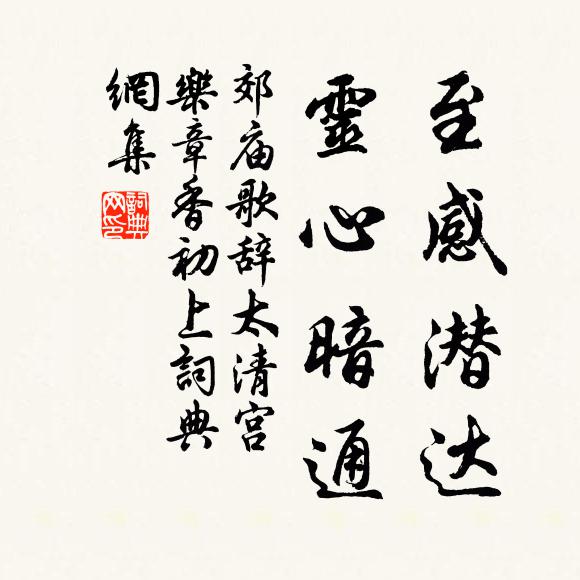 至感潜达
靈心暗通
郊庙歌辞太清宫
樂章香初上詞典
網集
詞典
网印